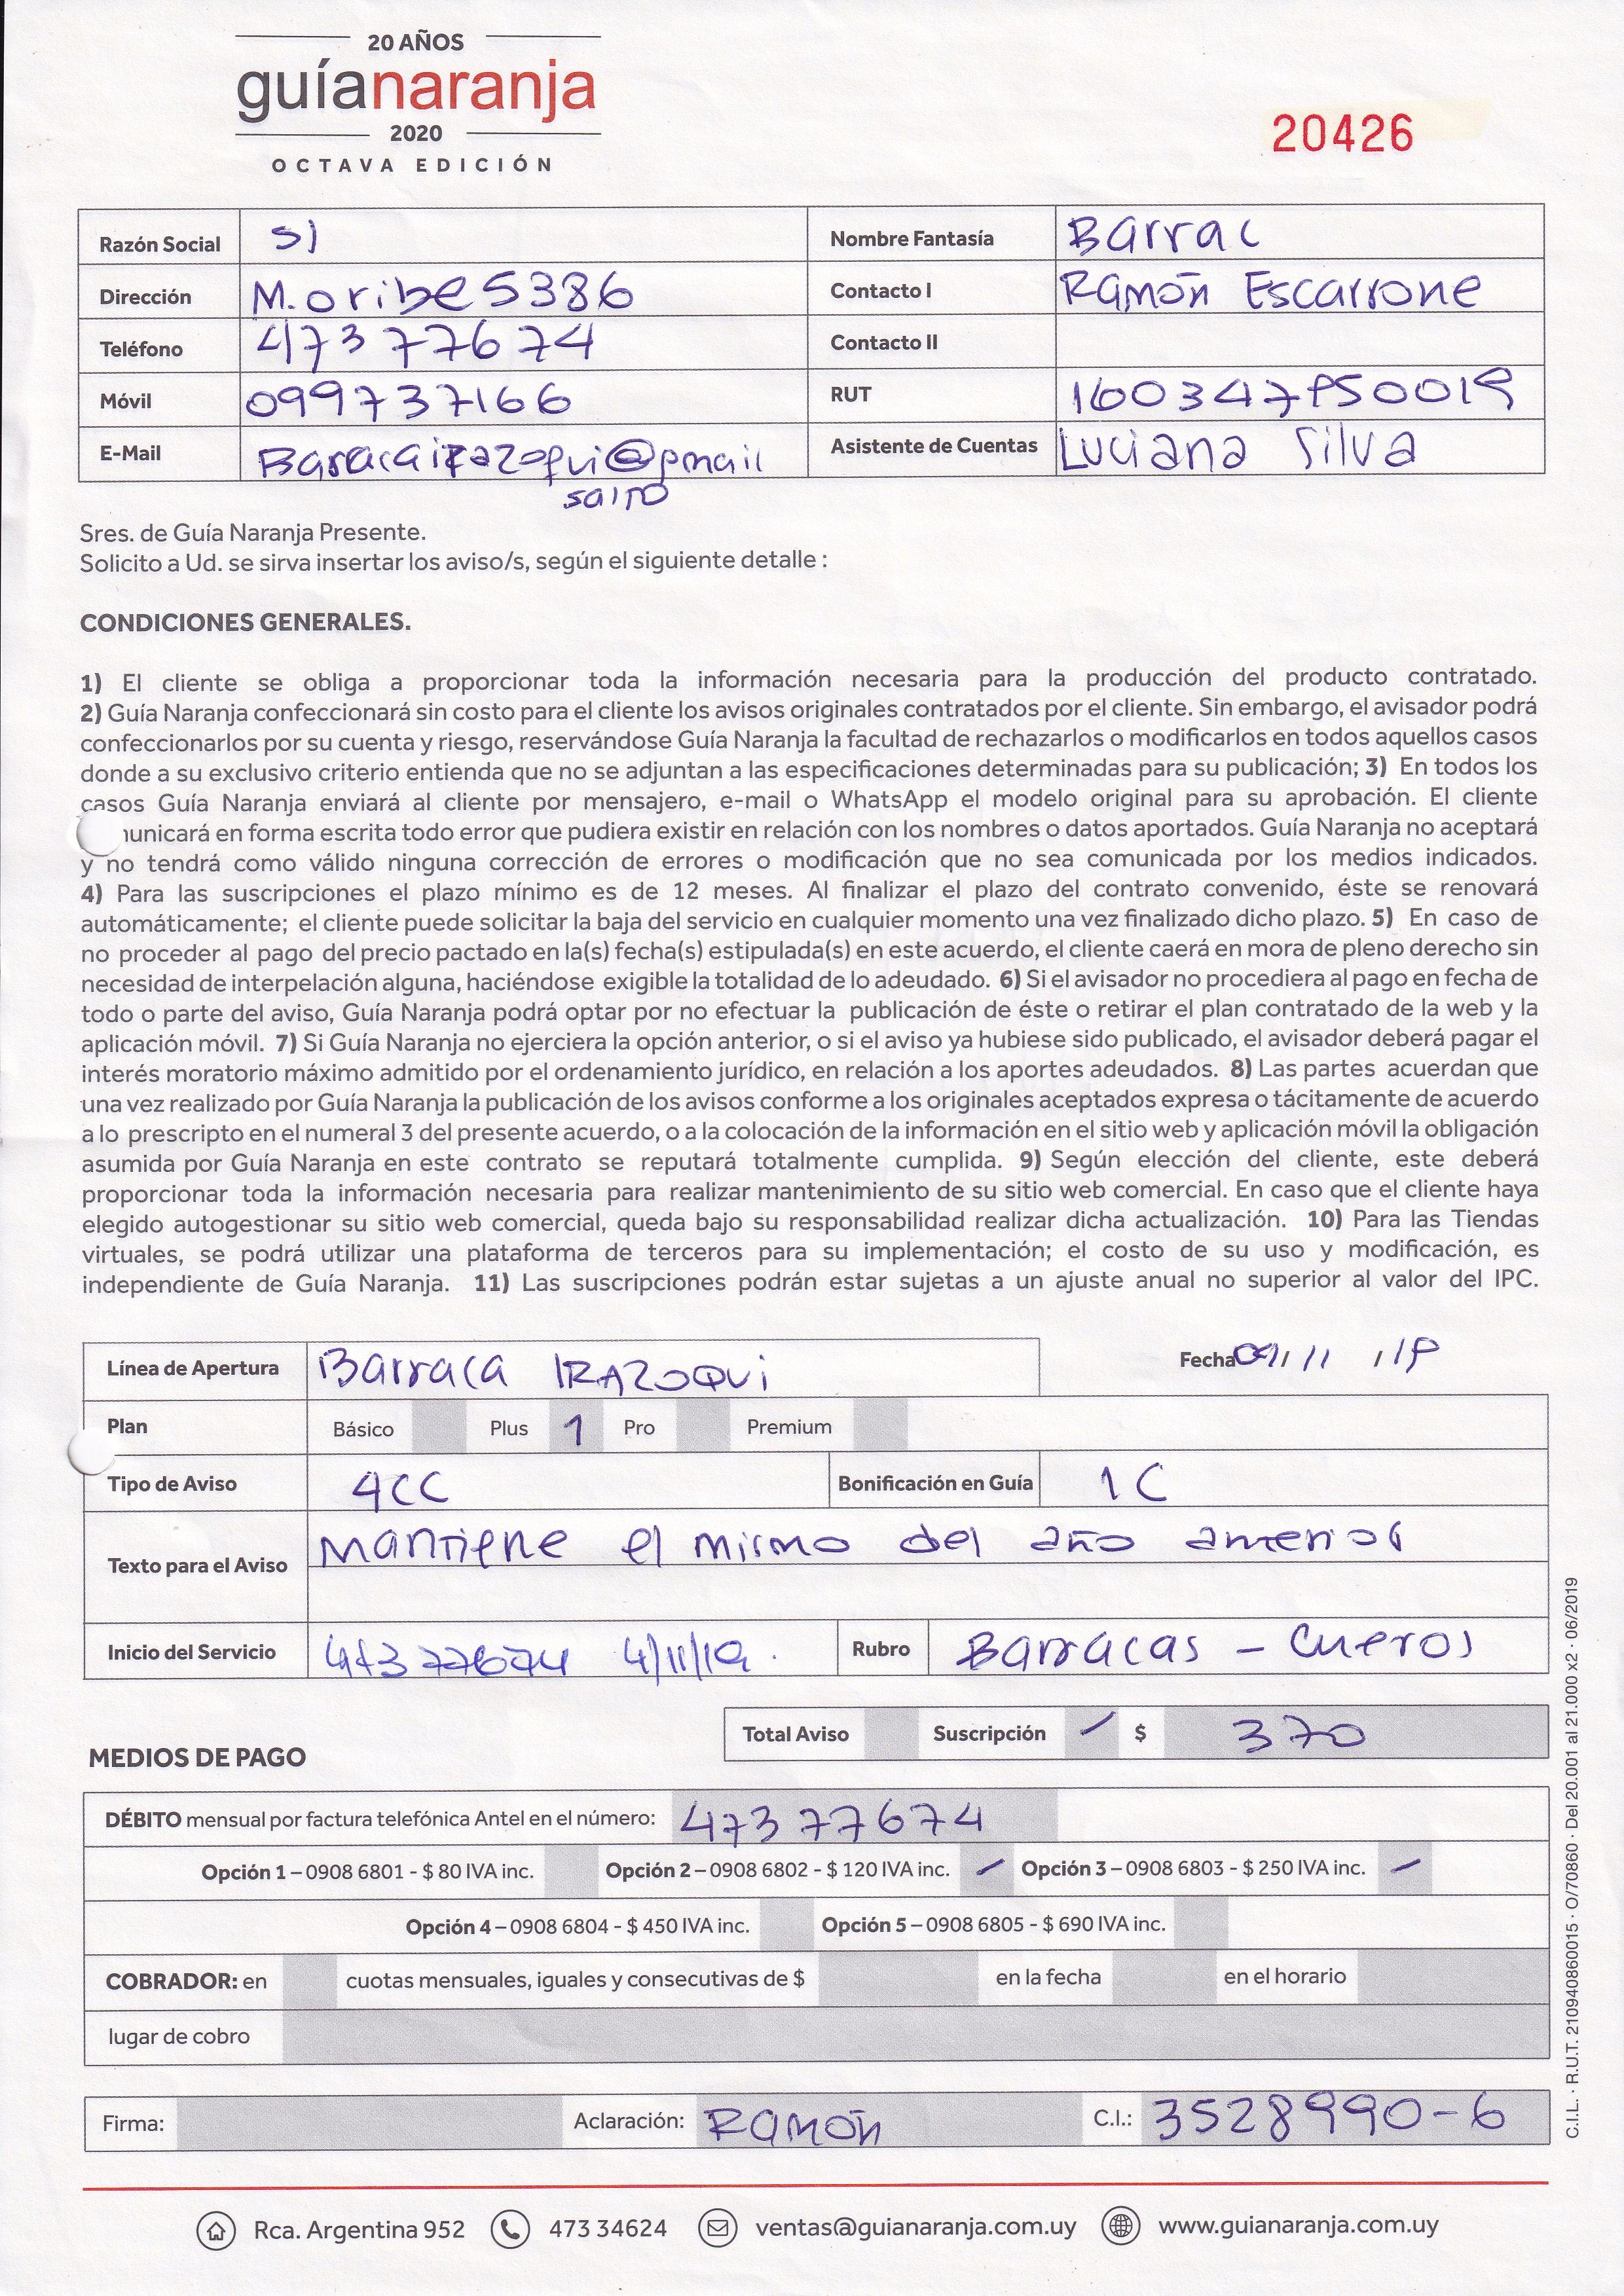 20 AÑOS
guíanaranja
2020
OCTAVA EDICIÓN
20426
Razón Social SI Nombre Fantasía Barrac
Dirección M. oribe 5386 Contacto I Ramón Escarrone
Teléfono 473 77674 Contacto II
Móvil 099737166 RUT
E-Mail Asistente de Cuentas Luciana Silva
Sres. de Guía Naranja Presente.
Solicito a Ud. se sirva insertar los aviso/s, según el siguiente detalle :
CONDICIONES GENERALES.
1) El cliente se obliga a proporcionar toda la información necesaria para la producción del producto contratado.
2) Guía Naranja confeccionará sin costo para el cliente los avisos originales contratados por el cliente. Sin embargo, el avisador podrá
confeccionarlos por su cuenta y riesgo, reservándose Guía Naranja la facultad de rechazarlos o modificarlos en todos aquellos casos
donde a su exclusivo criterio entienda que no se adjuntan a las especificaciones determinadas para su publicación; 3) En todos los
casos Guía Naranja enviará al cliente por mensajero, e-mail o WhatsApp el modelo original para su aprobación. El cliente
unicará en forma escrita todo error que pudiera existir en relación con los nombres o datos aportados. Guía Naranja no aceptará
y no tendrá como válido ninguna corrección de errores o modificación que no sea comunicada por los medios indicados.
4) Para las suscripciones el plazo mínimo es de 12 meses. Al finalizar el plazo del contrato convenido, éste se renovará
automáticamente; el cliente puede solicitar la baja del servicio en cualquier momento una vez finalizado dicho plazo. 5) En caso de
no proceder al pago del precio pactado en la(s) fecha(s) estipulada(s) en este acuerdo, el cliente caerá en mora de pleno derecho sin
necesidad de interpelación alguna, haciéndose exigible la totalidad de lo adeudado. 6) Si el avisador no procediera al pago en fecha de
todo o parte del aviso, Guía Naranja podrá optar por no efectuar la publicación de éste o retirar el plan contratado de la web y la
aplicación móvil. 7) Si Guía Naranja no ejerciera la opción anterior, o si el aviso ya hubiese sido publicado, el avisador deberá pagar el
interés moratorio máximo admitido por el ordenamiento jurídico, en relación a los aportes adeudados. 8) Las partes acuerdan que
una vez realizado por Guía Naranja la publicación de los avisos conforme a los originales aceptados expresa o tácitamente de acuerdo
a lo prescripto en el numeral 3 del presente acuerdo, o a la colocación de la información en el sitio web y aplicación móvil la obligación
asumida por Guía Naranja en este contrato se reputará totalmente cumplida. 9) Según elección del cliente, este deberá
proporcionar toda la información necesaria para realizar mantenimiento de su sitio web comercial. En caso que el cliente haya
elegido autogestionar su sitio web comercial, queda bajo su responsabilidad realizar dicha actualización. 10) Para las Tiendas
virtuales, se podrá utilizar una plataforma de terceros para su implementación; el costo de su uso y modificación, es
independiente de Guía Naranja. 11) Las suscripciones podrán estar sujetas a un ajuste anual no superior al valor del IPC.
Línea de Apertura Barraca IRAZOQUI Fecha
Plan Básico Plus 1 Pro Premium
Tipo de Aviso 4CC Bonificación en Guía 1 C
Texto para el Aviso Mantiene el mismo del año anterior
Inicio del Servicio 473 77674 4/11/19. Rubro Barracas - Cueros
Total Aviso Suscripción / $ 370
MEDIOS DE PAGO
DÉBITO mensual por factura telefónica Antel en el número: 473 77674
Opción 1 – 0908 6801 - $ 80 IVA inc. Opción 2 – 0908 6802 - $ 120 IVA inc. / Opción 3 – 0908 6803 - $ 250 IVA inc. /
Opción 4 – 0908 6804 - $ 450 IVA inc. Opción 5 – 0908 6805 - $ 690 IVA inc.
COBRADOR: en cuotas mensuales, iguales y consecutivas de $ en la fecha en el horario
lugar de cobro
Firma: Aclaración: Ramón C.I.: 3528990-6
Rca. Argentina 952 473 34624 ventas@guianaranja.com.uy www.guianaranja.com.uy
C.I.L. · R.U.T. 210940860015 · O/70860 · Del 20.001 al 21.000 x2 · 06/2019